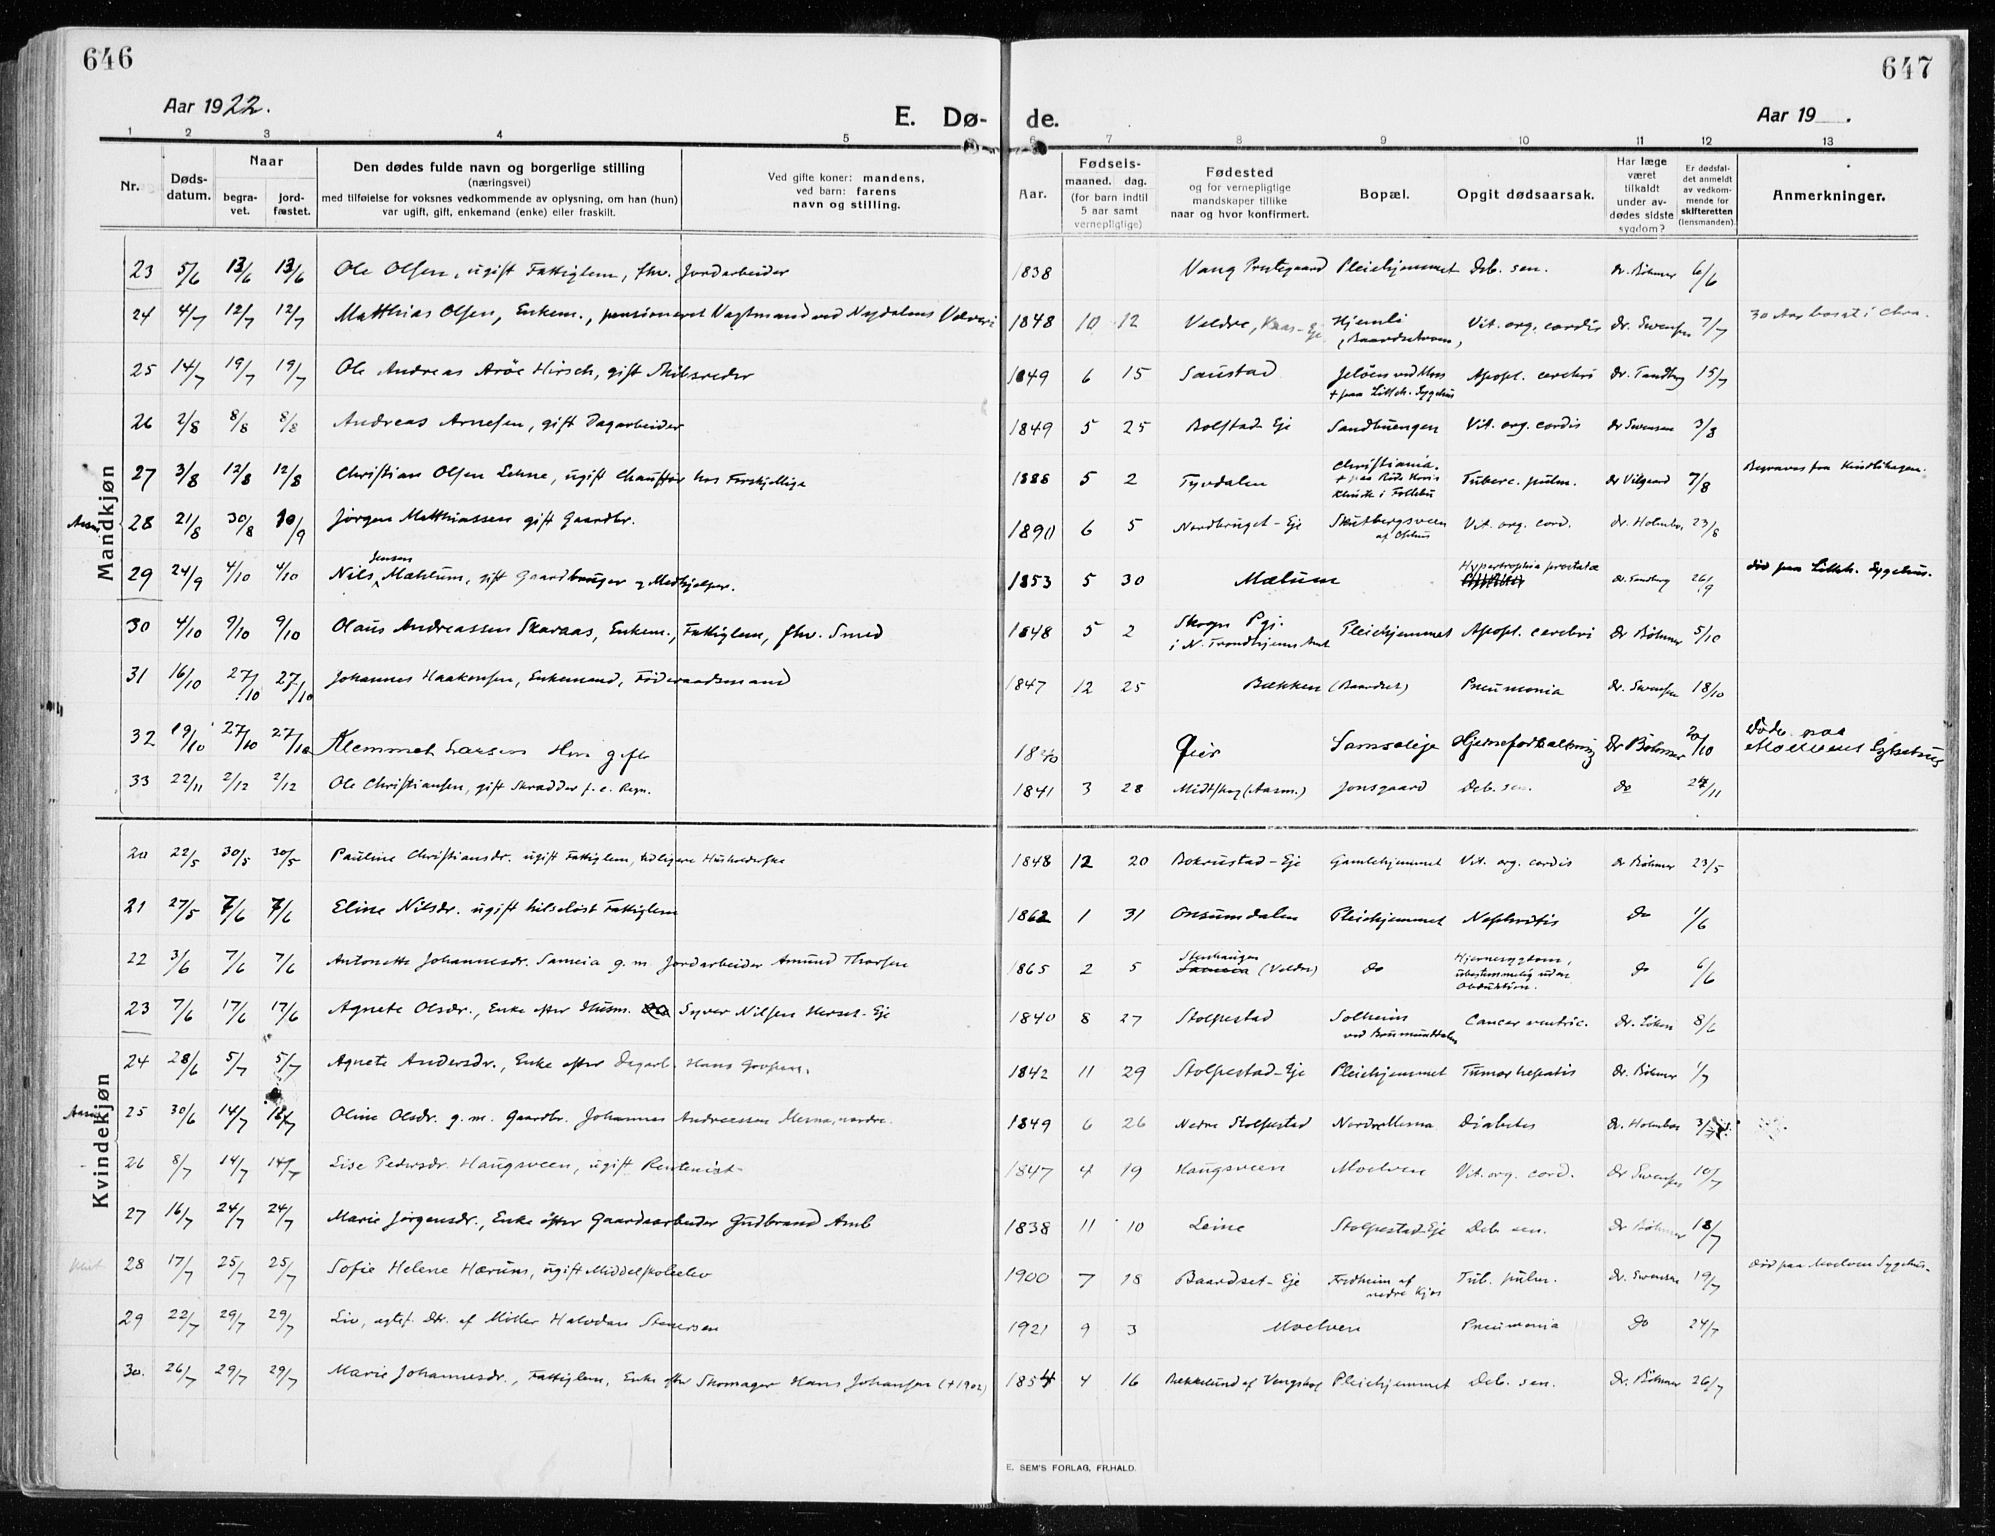 646
647
Aar 1922.
E. Dø-
de.
Aar 19 .
1 2 3 4 5 6 7 8 9 10 11 12 13
Nr.
Døds-
datum.
Naar
begra-
vet.
jord-
fæstet.
Den dødes fulde navn og borgerlige stilling
(næringsvei)
med tilføielse for voksnes vedkommende av oplysning, om han (hun)
var ugift, gift, enkemand (enke) eller fraskilt.
Ved gifte koner: mandens,
ved barn: farens
navn og stilling.
Aar.
Fødsels-
maaned. dag.
(for barn indtil
5 aar samt
vernepligtige)
Fødested
og for vernepligtige
mandskaper tillike
naar og hvor konfirmert.
Bopæl.
Opgit dødsaarsak.
Har læge
været
tilkaldt
under av-
dødes sidste
sygdom?
Er dødsfal-
det anmeldt
av vedkom-
mende for
skifteretten
(lensmanden).
Anmerkninger.
Mandkjøn
23 5/6 13/6 13/6 Ole Olsen, ugift Fattiglem, fhv. Jordarbeider 1838 Vang Prestegaard Pleiehjemmet Deb. sen. Dr. Böhmer 6/6
24 4/7 12/7 12/7 Matthias Olsen, Enkem., pensioneret Vagtmand ved Nydalens 1848 10 12 Veldre, Hjemli Vit. org. cordis Dr. Swensen 7/7 30 Aar bosat i Chra.
(Baardsetmoen)
25 14/7 19/7 19/7 Ole Andreas Aröe Hirsch, gift Skibsreder 1849 6 15 Saustad Jelöen ved Moss Apopl. cerebri Dr. Tandberg 15/7
+ paa Lilleh. Sygehus
26 2/8 8/8 8/8 Andreas Arnesen, gift Dagarbeider 1849 5 25 Bolstad Eje Sandbuengen Vit. org. cordis Dr Swensen 3/8
27 3/8 12/8 12/8 Christian Olsen Lehne, ugift Chauffør hos Forskjellige 1888 5 2 Tyvdalen Christiania. Tuberc. pulm. Dr Vilgaard 7/8
+ paa Röde Kors
Klinik i Follebu
28 21/8 30/8 10/9 Jørgen Matthiassen gift Gaardbr. 1890 6 5 Nordbruget - Eje Skutbergsveen Vit. org. cord. Dr. Holmboe 23/8
29 24/9 4/10 4/10 Nils Jensen Mæhlum, gift Gaardbruger og Medhjelper. 1853 5 30 Mælum Hypertrophia prostatæ Dr. Tandberg 26/9 död paa Lilleh. Sygehus.
30 4/10 9/10 9/10 Olaus Andreassen Skaraas, Enkem., Fattiglem, fhv. Smed 1848 5 2 Skogn Pgj. Pleiehjemmet Apopl. cerebri Dr Böhmer 5/10
i N. Trondhjems Amt
31 16/10 27/10 27/10 Johannes Haakensen, Enkemand, Föderaadsmand 1847 12 25 Bækken (Baardset) Pneumonia Dr. Swensen 18/10
32 19/10 27/10 27/10 Klemmet Larsen gift Samsaleje Dr Böhmer 20/10 Døde paa
33 22/11 2/12 2/12 Ole Christiansen, gift Skrædder f. e. Regn. 1841 3 28 Midtskog (Aasm.) Jonsgaard Deb. sen. Do 24/11
Kvindekjøn
20 22/5 30/5 30/5 Pauline Christiansdr. ugift Fattiglem, tidligere Husholderske 1848 12 20 Bokrustad - Eje Gamlehjemmet Vit. org. cordis Dr Böhmer 23/5
21 27/5 7/6 7/6 Eline Nilsdr. ugift hilseløst Fattiglem 1862 1 31 Onsumdalen Pleiehjemmet Nephritis Do 1/6
22 3/6 7/6 7/6 Antonette Johannesdr. Sameia g. m. Jordarbeider Amund Thorsen 1865 2 5 Stenhaugen (Veldre) Do Hjernesygdom, Do 6/6
ubestemmelig uden
Obduktion.
23 7/6 17/6 17/6 Agnete Olsdr., Enke efter Husm. Syver Nilsen Herset-Eje 1840 8 27 Stolpestad Solheim Cancer ventric. Dr. Löken 8/6
ved Brumunddalen
24 28/6 5/7 5/7 Agnete Andersdr., Enke efter Dagarb. Hans 1842 11 29 Stolpestad-Eje Pleiehjemmet Tumor hepatis Dr. Böhmer 1/7
25 30/6 14/7 Oline Olsdr. g. m. Gaardbr. Johannes Andreassen Mesna, nordre. 1849 6 26 Nedre Stolpestad Nordre Mesna Diabetes Dr. Holmboe 3/7
26 8/7 14/7 14/7 Lise Pedersdr. Haugsveen, ugift Rentenist 1847 4 19 Haugsveen Moelven Vit. org. cord. Dr Swensen 10/7
27 16/7 24/7 24/7 Marie Jørgensdr., Enke efter Gaardsarbeider Gudbrand Amb 1838 11 10 Leine Stolpestad-Eje Deb. sen. Dr Böhmer 18/7
28 17/7 25/7 25/7 Sofie Helene Hærum, ugift Middelskoleelev 1900 7 18 Baardset - Eje Fredheim af Tub. pulm. Dr. Swensen 19/7 Död paa Moelven Sygehus.
nedre Kjos
29 22/7 29/7 29/7 Liv, egtef. Dtr. af Möller Halvdan Stenersen 1921 9 3 Moelven Pneumonia Do 24/7
30. 26/7 29/7 29/7 Marie Johannesdr., Fattiglem, Enke efter Skomager Hans Johansen (+1902) 1854 4 16 Bækkelund af Vengshol Pleiehjemmet Deb. sen. Dr. Böhmer 26/7
E. SEM'S FORLAG, FR.HALD.